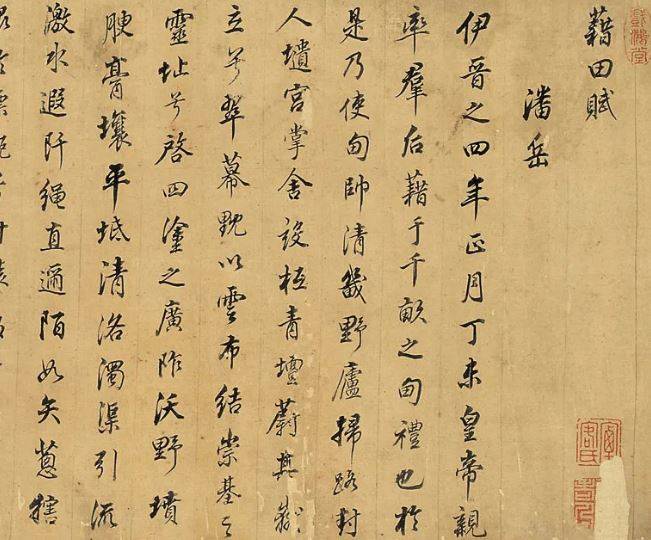 藉田賦
潘岳
伊晉之四年正月丁未皇帝親
率羣后藉于千畝之甸禮也於
是乃使甸帥清畿野廬掃路封
人壝宮掌舍設枑青壇蔚其嶽
立兮翠幕黕以雲布結崇基之
靈址兮啓四塗之廣阼沃野墳
腴膏壤平坻清洛濁渠引流
激水遐阡繩直邇陌如矢葱犗